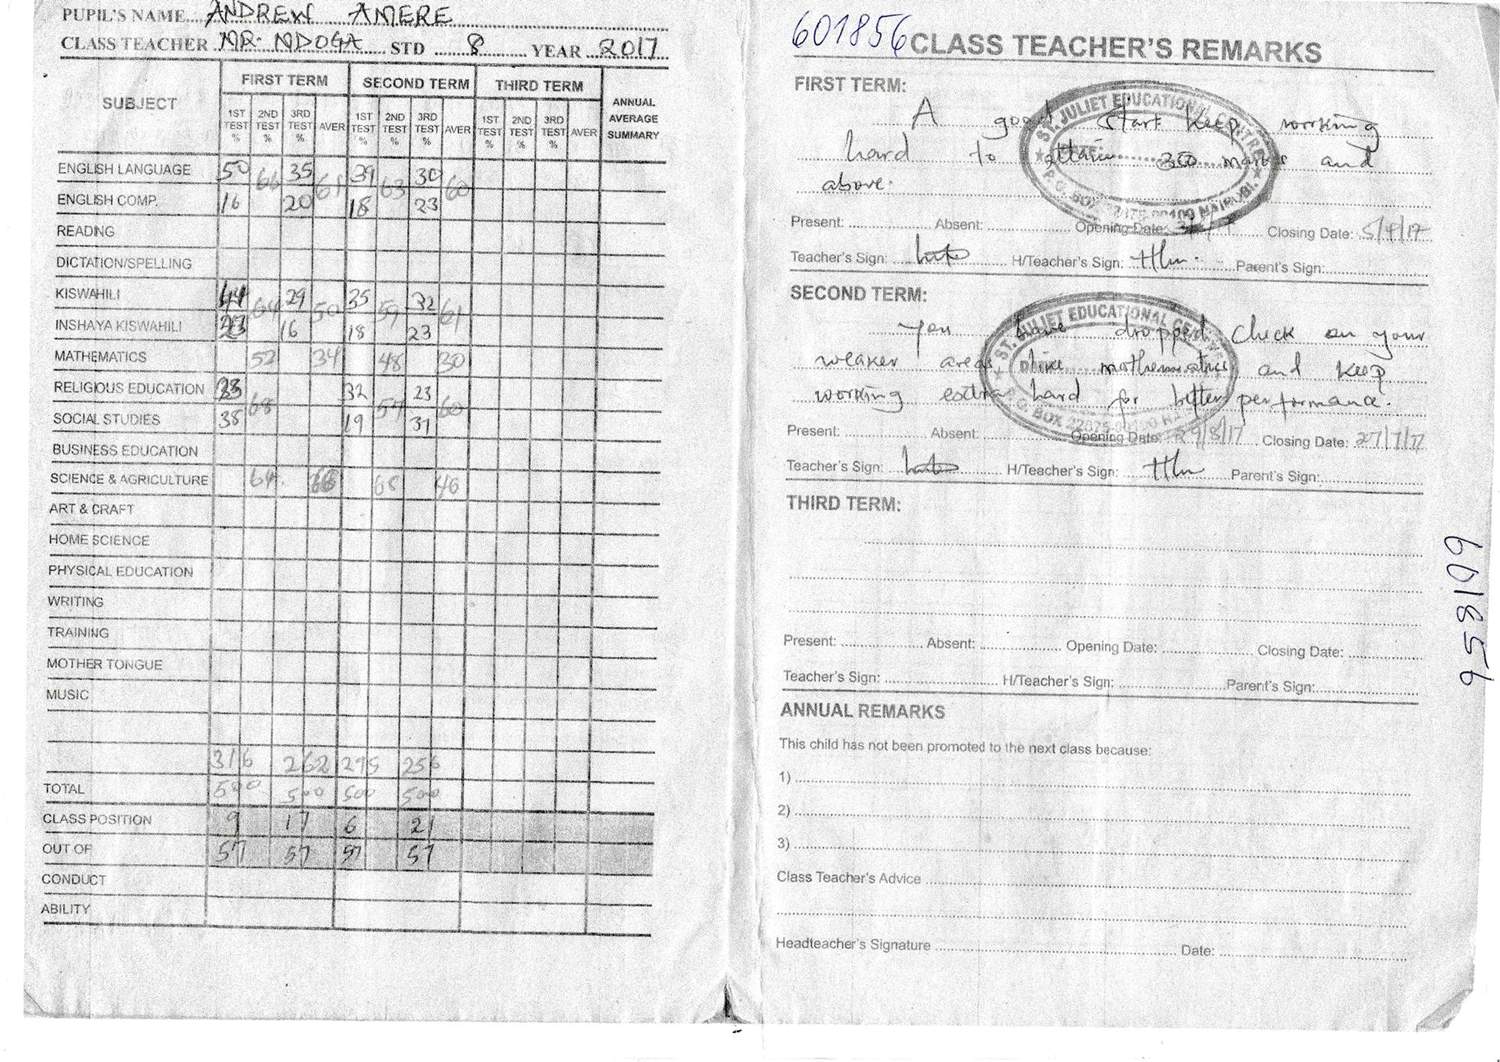 PUPIL'S NAME ANDREW AMERE
CLASS TEACHER MR. NDOGA STD 8 YEAR 2017
SUBJECT FIRST TERM SECOND TERM THIRD TERM ANNUAL AVERAGE SUMMARY
1ST TEST % 2ND TEST % 3RD TEST % AVER 1ST TEST % 2ND TEST % 3RD TEST % AVER 1ST TEST % 2ND TEST % 3RD TEST % AVER
ENGLISH LANGUAGE 50 66 35 39 63 30 60
ENGLISH COMP. 16 20 18 23
READING
DICTATION/SPELLING
KISWAHILI 44 64 29 50 35 59 32 61
INSHAYA KISWAHILI 16 18 23
MATHEMATICS 52 34 48 30
RELIGIOUS EDUCATION 33 68 32 23 60
SOCIAL STUDIES 38 19 31
BUSINESS EDUCATION
SCIENCE & AGRICULTURE 64 68 46
ART & CRAFT
HOME SCIENCE
PHYSICAL EDUCATION
WRITING
TRAINING
MOTHER TONGUE
MUSIC
316 262 295 256
TOTAL 500 500 500 500
CLASS POSITION 9 17 6 21
OUT OF 57 57 57 57
CONDUCT
ABILITY
601856 CLASS TEACHER'S REMARKS
FIRST TERM:
A good start keep working
hard to attain 300 marks and
above.
ST. JULIET EDUCATIONAL CENTRE
P. O. BOX 22875-00100 NAIROBI.
Present: Absent: Opening Date: Closing Date: 5/4/17
Teacher's Sign: H/Teacher's Sign: Parent's Sign:
SECOND TERM:
You have dropped check on your
weaker areas like mathematics and keep
working extra hard for better performance.
ST. JULIET EDUCATIONAL CENTRE
P. O. BOX 22875-00100
Present: Absent: Opening Date: 29/8/17 Closing Date: 27/7/17
Teacher's Sign: H/Teacher's Sign: Parent's Sign:
THIRD TERM:
Present: Absent: Opening Date: Closing Date:
Teacher's Sign: H/Teacher's Sign: Parent's Sign:
ANNUAL REMARKS
This child has not been promoted to the next class because:
1)
2)
3)
Class Teacher's Advice
Headteacher's Signature Date:
601856